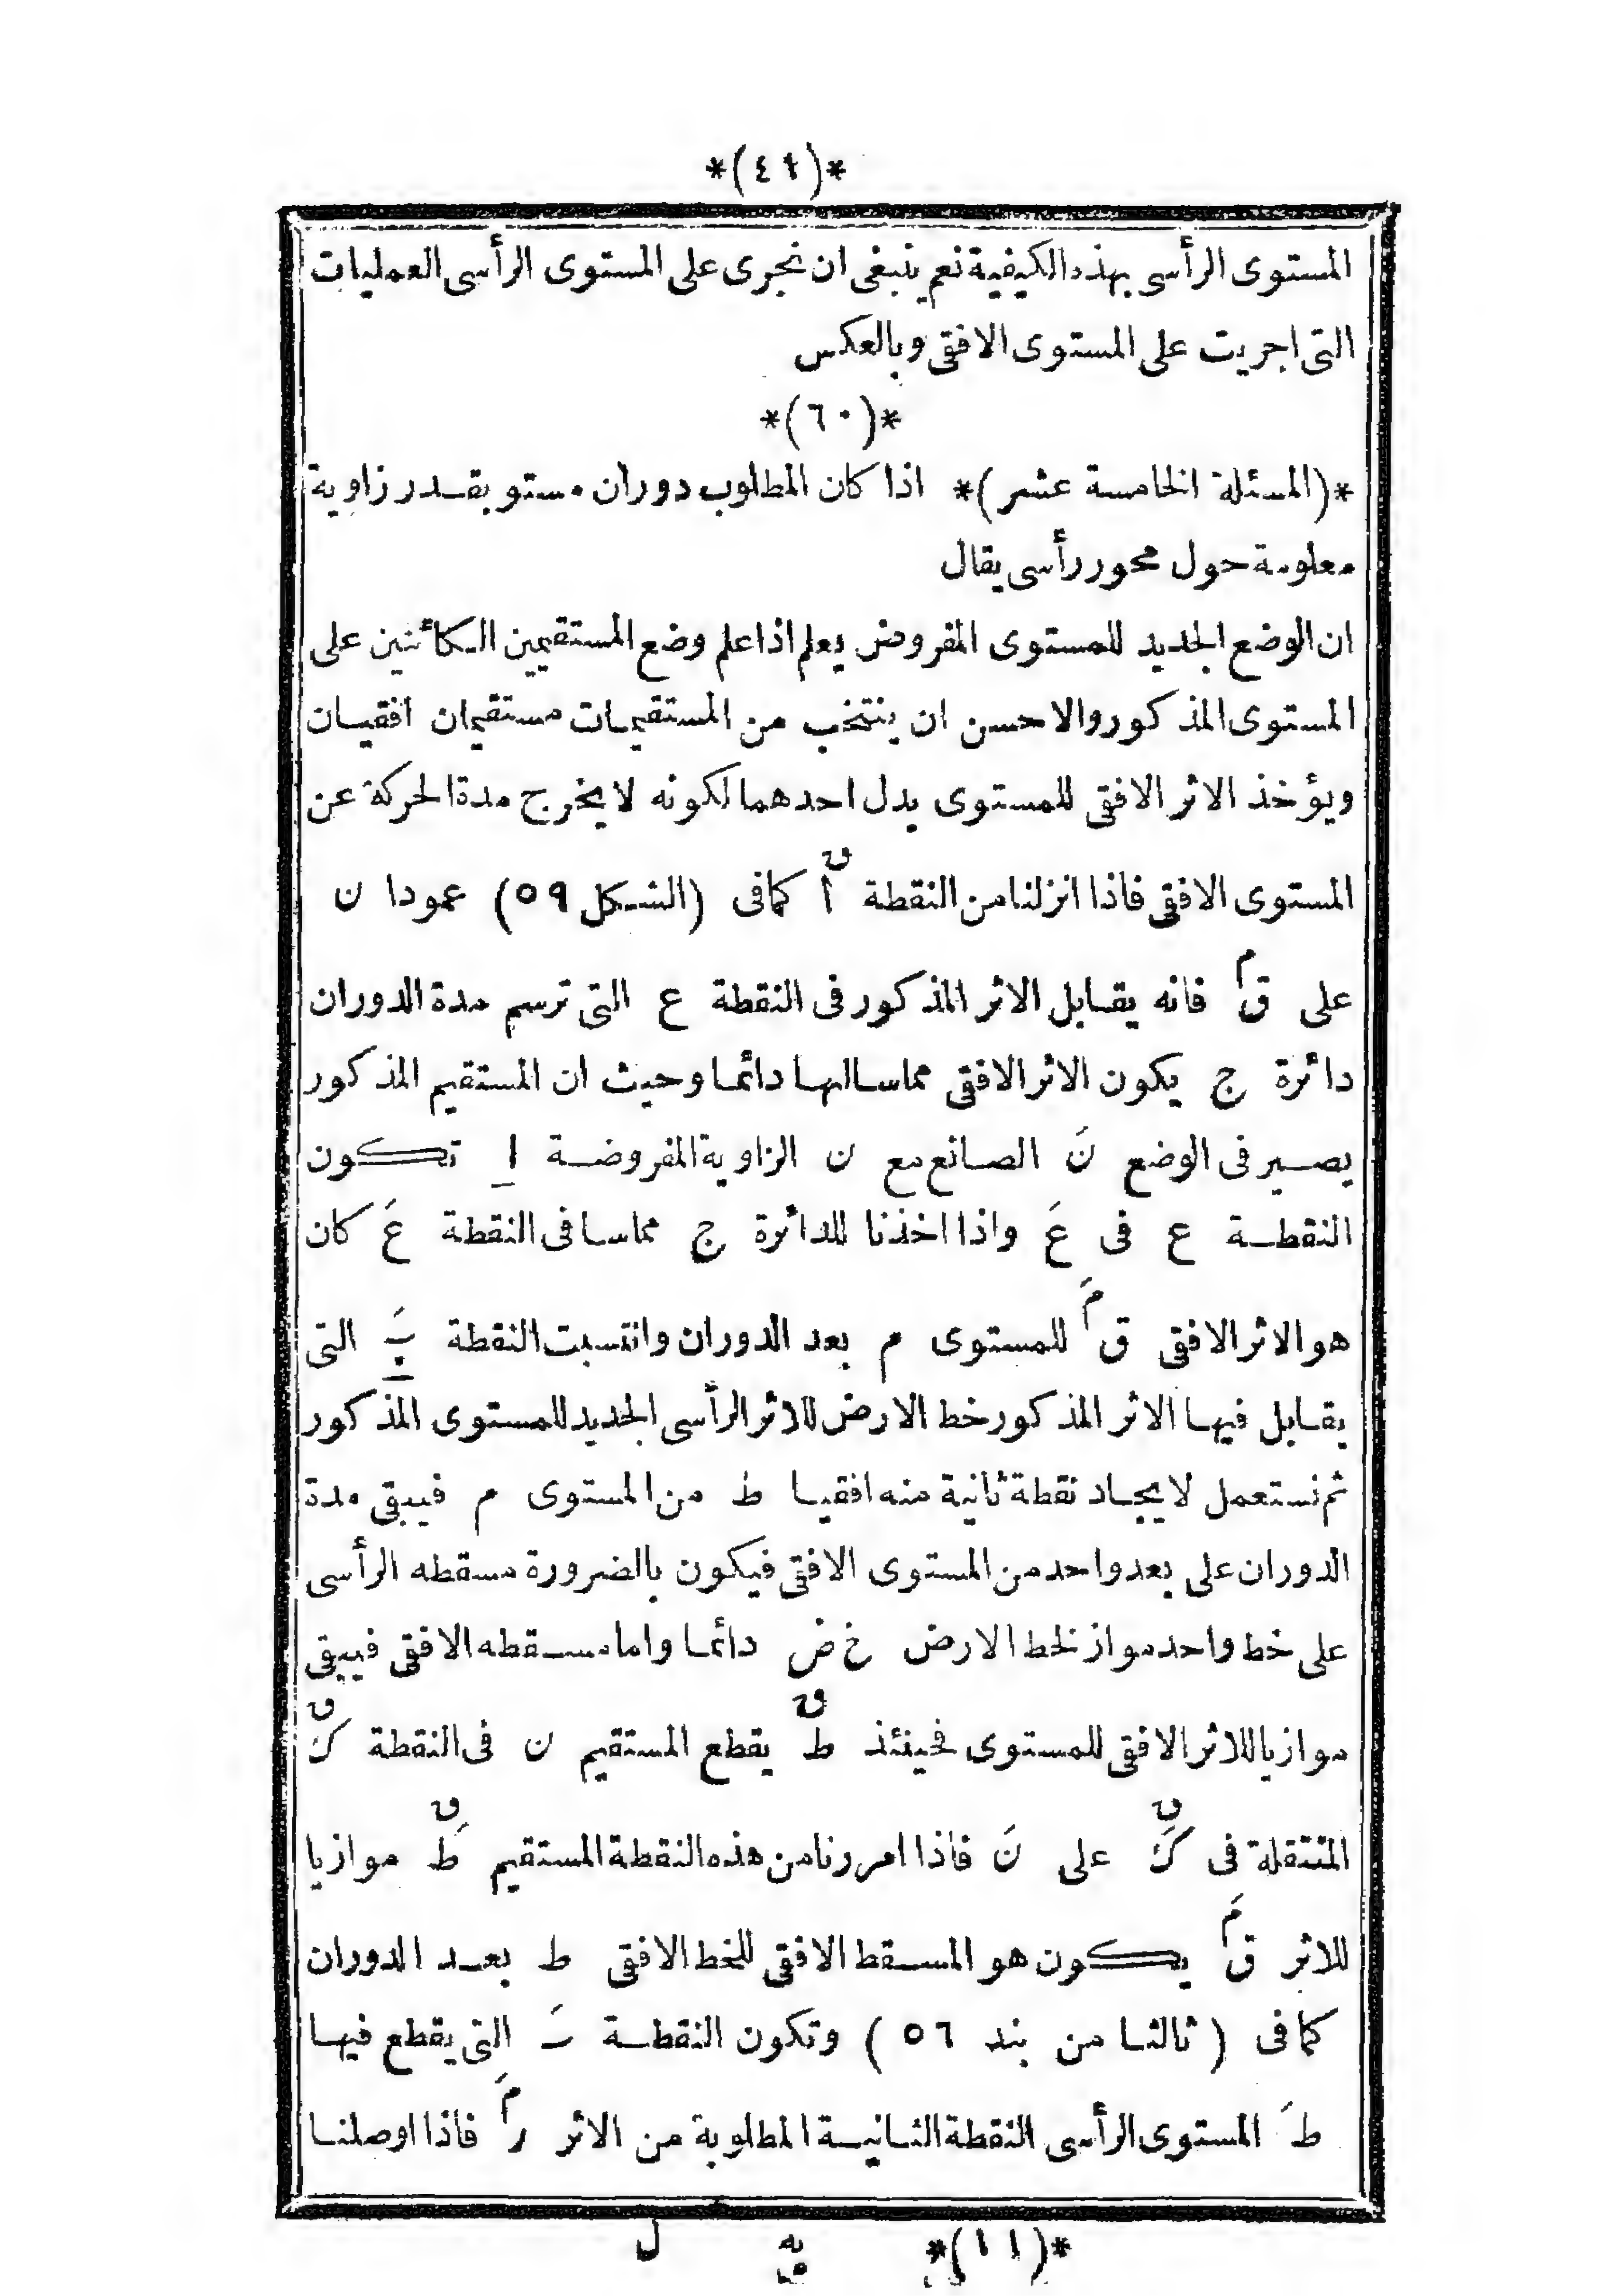 *(٤١)*
المستوى الرأسى بهذه الكيفية نعم ينبغى ان نجرى على المستوى الرأسى العمليات
التى اجريت على المستوى الافقى وبالعكس
*(٦٠)*
*(المسئلة الخامسة عشر)* اذا كان المطلوب دوران مستو بقدر زاوية
معلومة حول محور رأسى يقال
ان الوضع الجديد للمستوى المفروض يعلم اذا علم وضع المستقيمين الكائنين على
المستوى المذكور والاحسن ان ينتخب من المستقيمات مستقيمان افقيان
ويؤخذ الاثر الافقى للمستوى بدل احدهما لكونه لا يخرج مدة الحركة عن
المستوى الافقى فاذا انزلنا من النقطة أ كمافى (الشكل ٥٩) عمودا ن
على ق م فانه يقابل الاثر المذكور فى النقطة ع التى ترسم مدة الدوران
دائرة ج يكون الاثر الافقى مماسا لها دائما وحيث ان المستقيم المذكور
يصير فى الوضع نَ الصانع مع ن الزاوية المفروضة ا تكون
النقطة ع فى عَ واذا اخذنا للدائرة ج مماسا فى النقطة عَ كان
هو الاثر الافقى ق مَ للمستوى م بعد الدوران وانتسبت النقطة بَ التى
يقابل فيها الاثر المذكور خط الارض للاثر الرأسى الجديد للمستوى المذكور
ثم نستعمل لايجاد نقطة ثانية منه افقيا ط من المستوى م فيبقى مدة
الدوران على بعد واحد من المستوى الافقى فيكون بالضرورة مسقطه الرأسى
على خط واحد مواز لخط الارض خ ض دائما واما مسقطه الافقى فيبقى
موازيا للاثر الافقى للمستوى فحينئذ ط ق يقطع المستقيم ن فى النقطة ك ق
المنتقلة فى كَ ق على نَ فاذا امررنا من هذه النقطة المستقيم طَ ق موازيا
للاثر ق مَ يكون هو المسقط الافقى للخط الافقى ط بعد الدوران
كمافى (ثالثا من بند ٥٦) وتكون النقطة َ التى يقطع فيها
طَ المستوى الرأسى النقطة الثانية المطلوبة من الاثر ر مَ فاذا اوصلنا
*(١١)* يه ل